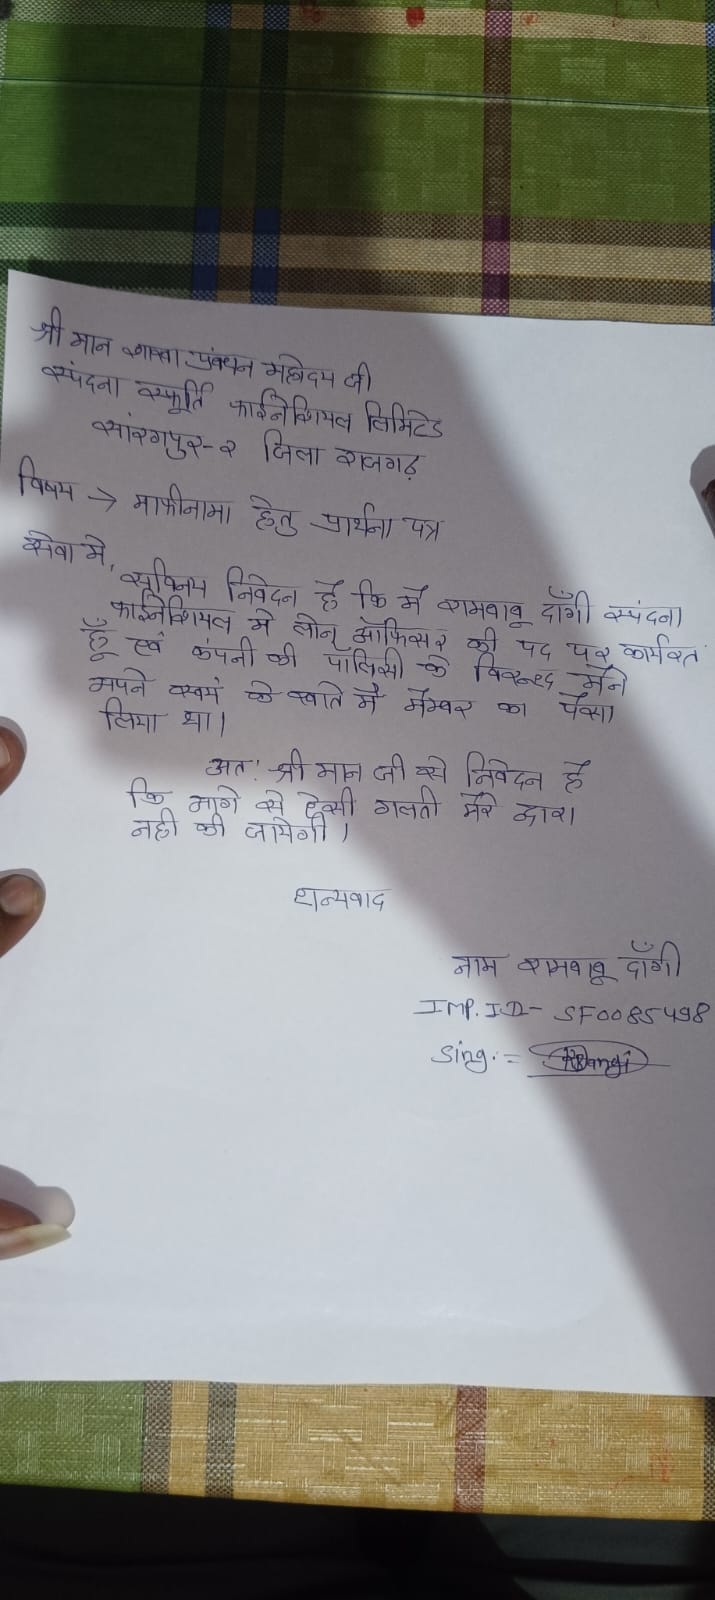 श्री मान शाखा प्रबंधन महोदय जी
स्पंदना स्फूर्ति फाईनेंशियल लिमिटेड
सारंगपुर-२ जिला राजगढ़
विषय → माफीनामा हेतु प्रार्थना पत्र
सेवा मे,
सविनय निवेदन है कि मैं रामबाबू दाँगी स्पंदना
फाईनेंशियल मे लोन ऑफिसर की पद पर कार्यरत
हूँ एवं कंपनी की पॉलिसी के विरुद्ध मैंने
अपने स्वयं के खाते में मेम्बर का पैसा
लिया था।
अतः श्री मान जी से निवेदन है
कि आगे से ऐसी गलती मेरे द्वारा
नही की जायेगी।
धन्यवाद
नाम रामबाबू दाँगी
IMP. ID- SF0085498
Sing. = RDangi